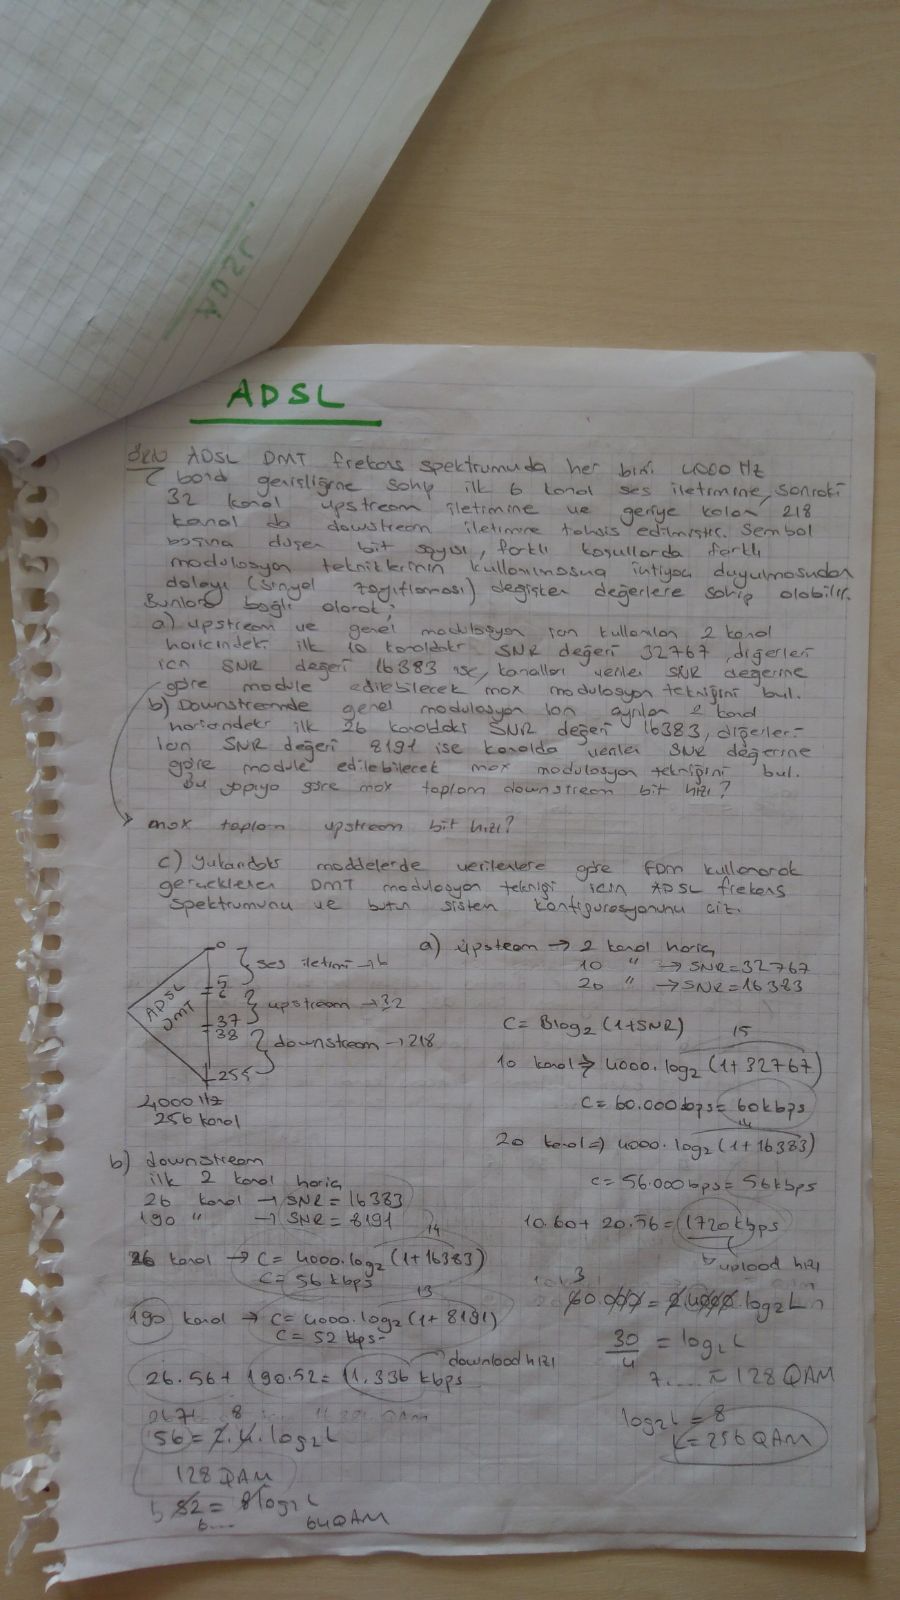 ADSL
ADSL
ADSL DMT frekans spektrumuda her biri 4000 Hz
band genişliğine sahip ilk 6 kanal ses iletimine, sonraki
32 kanal upstream iletimine ve geriye kalan 218
kanal da downstream iletimine tahsis edilmiştir. Sembol
başına düşen bit sayısı, farklı koşullarda farklı
modulasyon tekniklerinin kullanılmasına ihtiyaç duyulmasından
dolayı (sinyal zayıflaması) değişken değerlere sahip olabilir.
Bunlara bağlı olarak;
a) Upstream ve genel modulasyon için kullanılan 2 kanal
haricindeki ilk 10 kanaldaki SNR değeri 32767, diğerleri
için SNR değeri 16383 ise, kanalları verilen SNR değerine
göre module edilebilecek max modulasyon tekniğini bul.
b) Downstreamde genel modulasyon için ayrılan 2 kanal
haricindeki ilk 26 kanaldaki SNR değeri 16383, diğerleri
için SNR değeri 8191 ise kanalda verilen SNR değerine
göre module edilebilecek max modulasyon tekniğini bul.
Bu yapıya göre max toplam downstream bit hızı?
max toplam upstream bit hızı?
c) Yukarıdaki maddelerde verilenlere göre FDM kullanarak
gerçeklenen DMT modulasyon tekniği için ADSL frekans
spektrumunu ve bütün sistem konfigurasyonunu çiz.
0
ses iletimi → 6
5
6
ADSL DMT
upstream → 32
37
38
downstream → 218
255
4000 Hz
256 kanal
a) upsteam → 2 kanal hariç
10 " → SNR = 32767
20 " → SNR = 16383
C = B log2 (1+SNR)
15
10 kanal ⇒ 4000. log2 (1+32767)
C = 60.000 bps = 60 kbps
14
20 kanal ⇒ 4000. log2 (1+16383)
C = 56.000 bps = 56 kbps
10.60 + 20.56 = 1720 kbps
upload hızı
3
60.000 = 2.4000. log2 L
30/4 = log2 L
7.... ≈ 128 QAM
log2 L = 8
L = 256 QAM
b) downstream
ilk 2 kanal hariç
26 kanal → SNR = 16383
190 " → SNR = 8191
14
26 kanal → C = 4000. log2 (1+16383)
C = 56 kbps
13
190 kanal → C = 4000. log2 (1+8191)
C = 52 kbps
26.56 + 190.52 = 11.336 kbps
download hızı
8
56 = 2.4. log2 L
128 QAM
52 = 8 log2 L
6....
64 QAM